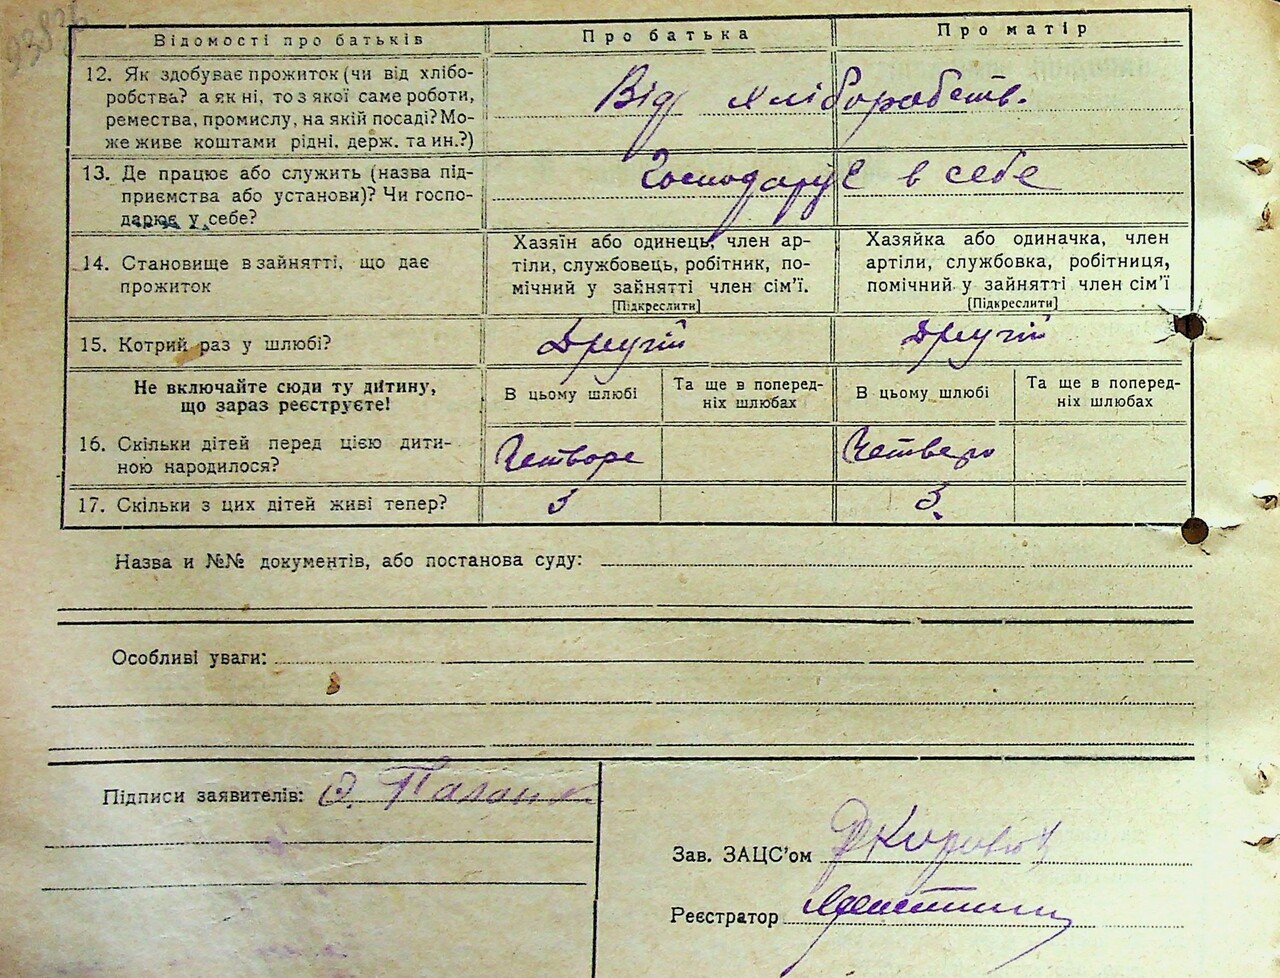 Відомості про батьків Про батька Про матір
12. Як здобуває прожиток (чи від хлібо-
робства? а як ні, то з якої саме роботи,
ремества, промислу, на якій посаді? Мо-
же живе коштами рідні, держ. та ин.?)
Від хліборобств.
13. Де працює або служить (назва під-
приємства або установи)? Чи госпо-
дарює у себе?
Господарує в себе
14. Становище в зайнятті, що дає
прожиток
Хазяїн або одинець, член ар-
тіли, службовець, робітник, по-
мічний у зайнятті член сім'ї.
[Підкреслити]
Хазяйка або одиначка, член
артіли, службовка, робітниця,
помічний у зайнятті член сім'ї
[Підкреслити]
15. Котрий раз у шлюбі? Другий Другий
Не включайте сюди ту дитину,
що зараз реєструєте!
В цьому шлюбі
Та ще в поперед-
ніх шлюбах
В цьому шлюбі
Та ще в поперед-
ніх шлюбах
16. Скільки дітей перед цією дити-
ною народилося?
Четверо Четверо
17. Скільки з цих дітей живі тепер? 3 3.
Назва и №№ документів, або постанова суду:
Особливі уваги:
Підписи заявителів:
Зав. ЗАЦС'ом
Реєстратор